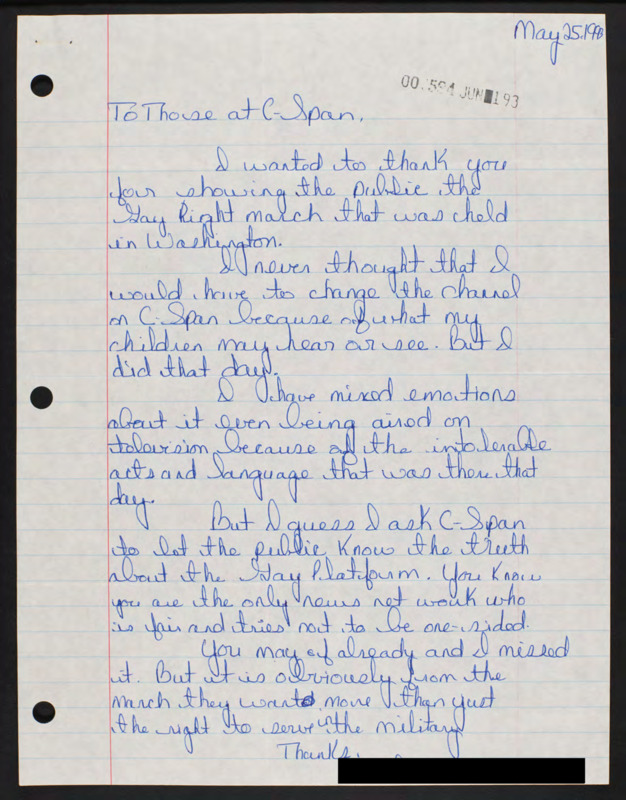 May 25, 1993
00.554 JUN 193
To Those at C-Span,
I wanted to thank you
for showing the public the
Gay Right march that was held
in Washington.
I never thought that I
would have to change the channel
on C-Span because of what my
children may hear or see. But I
did that day.
I have mixed emotions
about it even being aired on
television because of the intolerable
acts and language that was there that
day.
But I guess I ask C-Span
to let the public know the truth
about the Gay Platform. You know
you are the only news net work who
is fair and tries not to be one-sided.
You may of already and I missed
it. But it is obviously from the
march they want more than just
the right to serve in the military
Thanks,